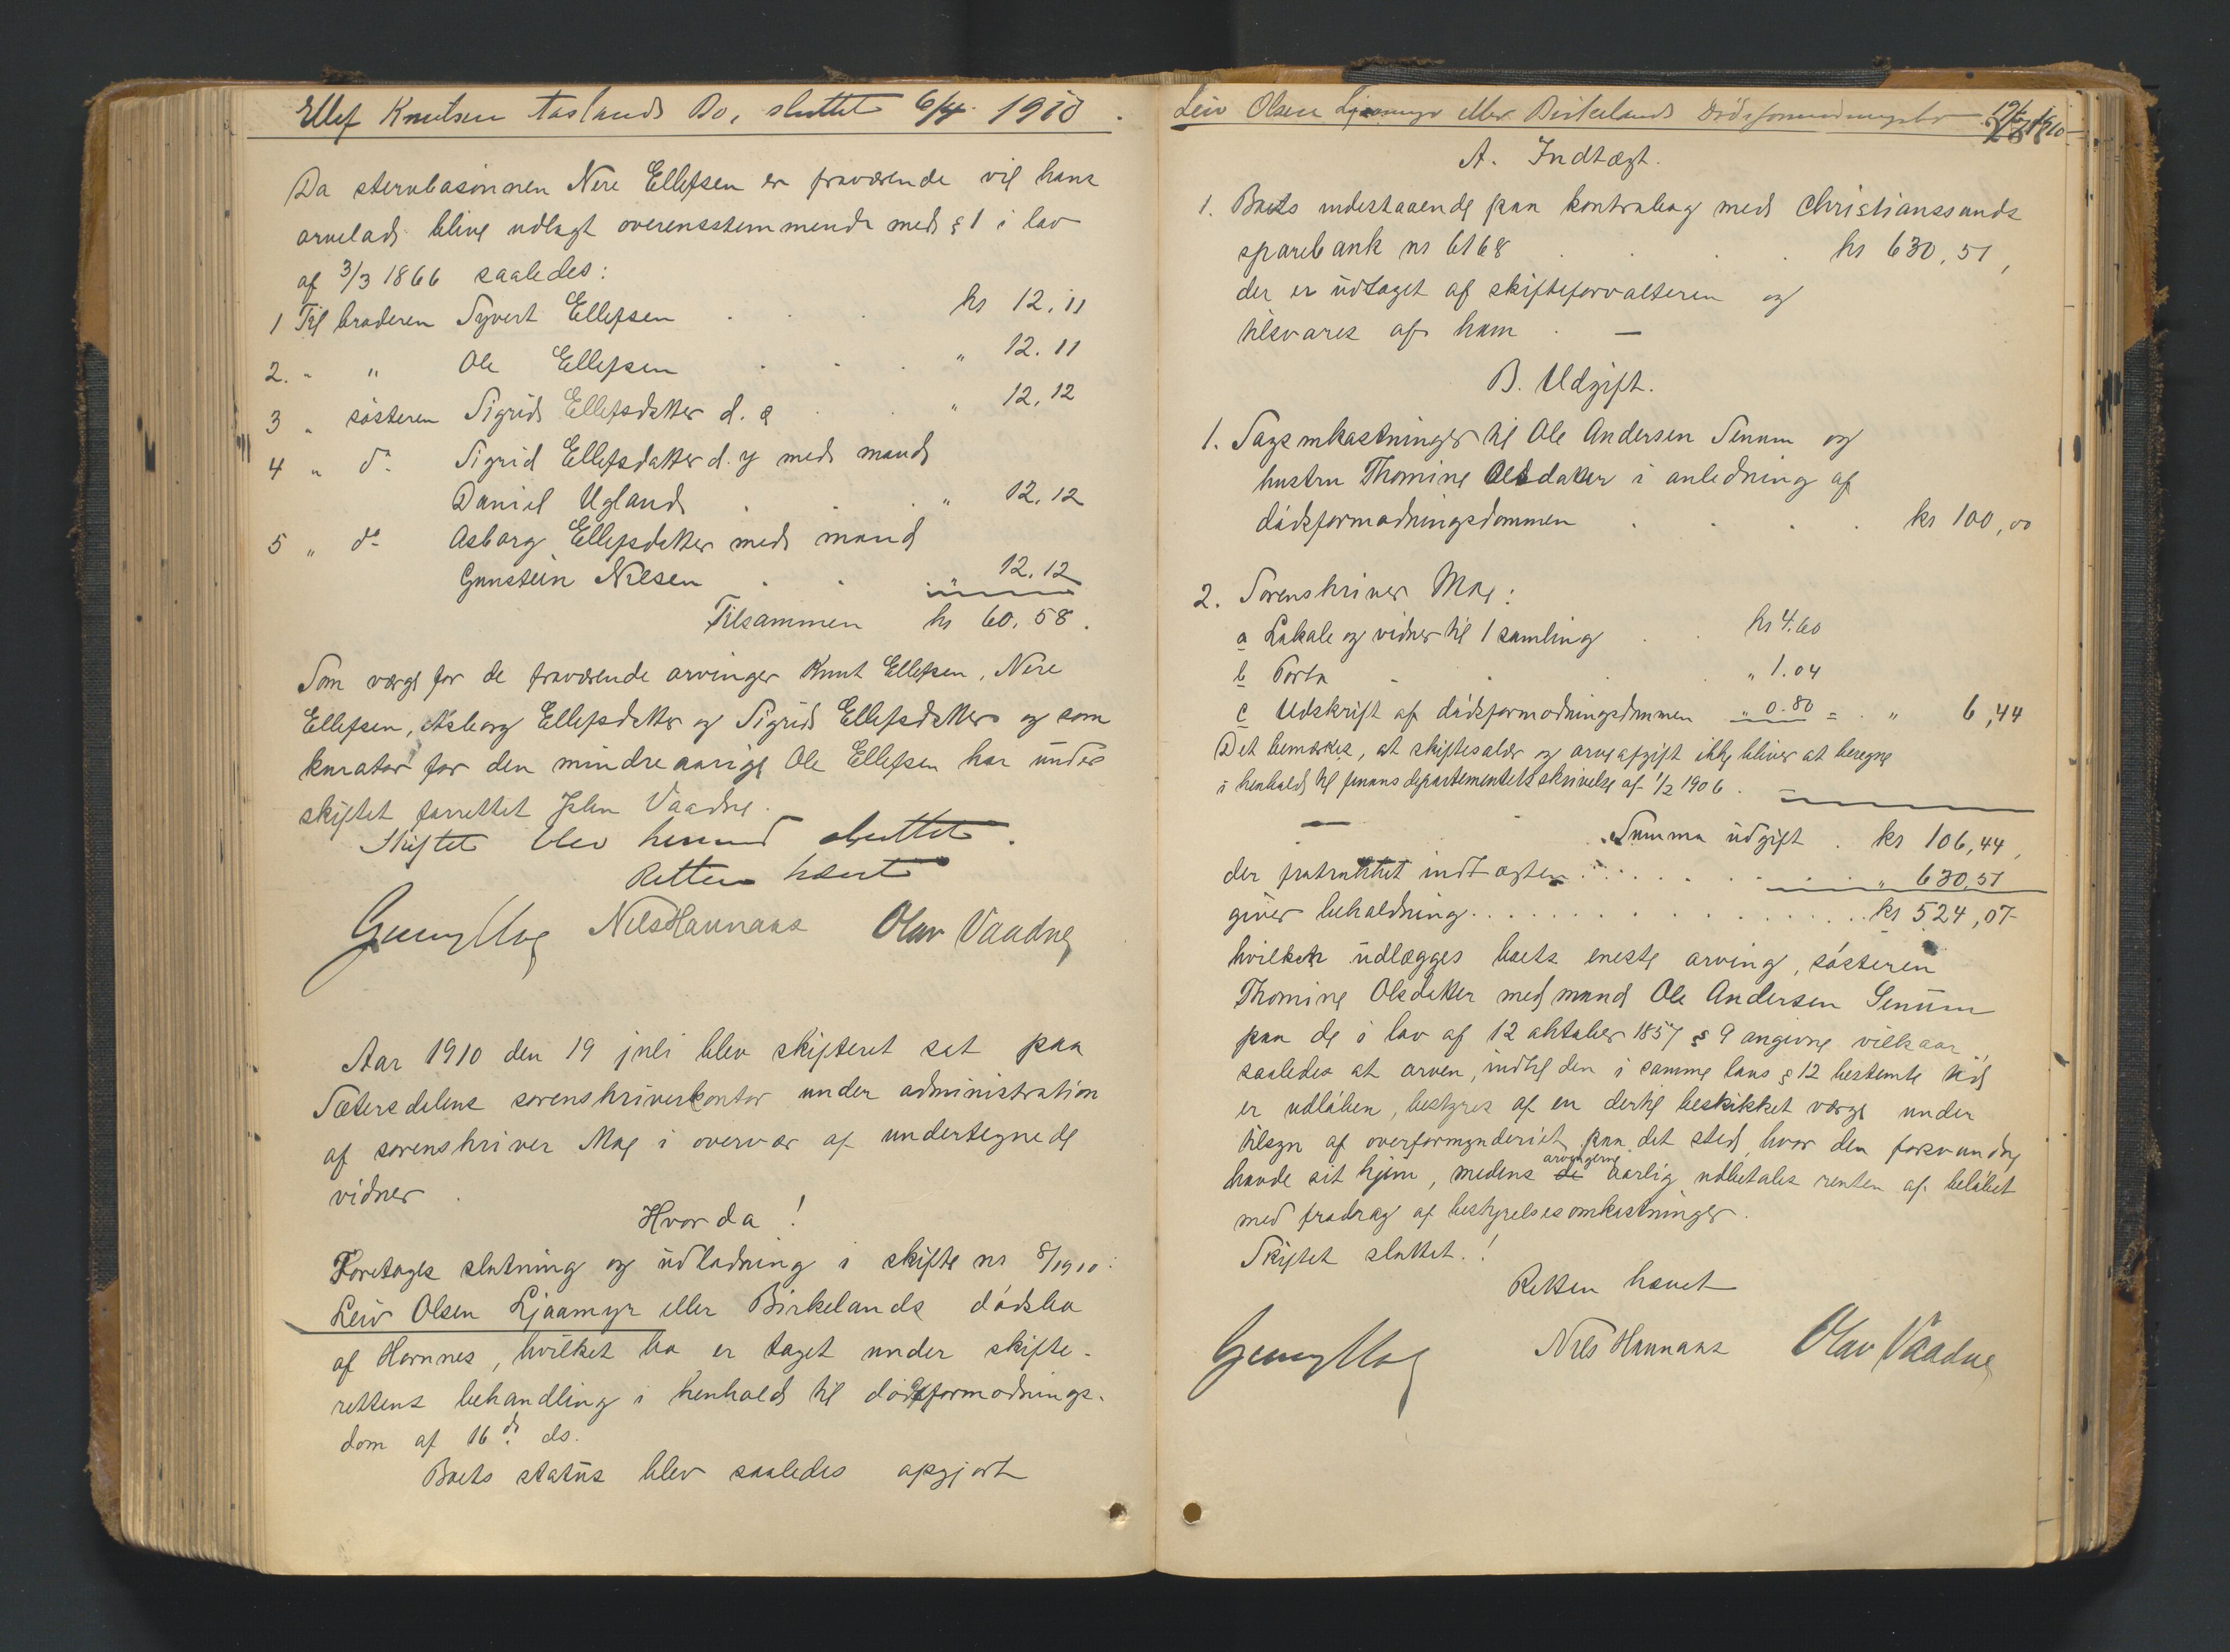 Ellef Knutsen Aaslands Bo, sluttet 6/4 1910.
Da stervbosönnen Nere Ellefsen er fraværende vil hans
arvelod blive udlagt overensstemmende med § 1 i lov
af 3/3 1866 saaledes:
1 Til broderen Syvert Ellefsen . . . kr 12.11
2. " " Ole Ellefsen . . . " 12.11
3 " sösteren Sigrid Ellefsdatter d. æ . . " 12,12
4 " do Sigrid Ellefsdatter d. y med mand
Daniel Ugland . . . " 12,12
5 " do Asborg Ellefsdatter med mand
Gunstein Nilsen . . . " 12.12
Tilsammen kr 60.58.
Som værge for de fraværende arvinger Knut Ellefsen, Nere
Ellefsen, Asborg Ellefsdatter og Sigrid Ellefsdatter og som
kurator for den mindreaarige Ole Ellefsen har under
skiftet forrettet John Vaadne.
Skiftet blev herved sluttet.
Retten hævet
Nils Hannaas Olav Vaadne
Aar 1910 den 19 juli blev skifteret sat paa
Sætersdalens sorenskriverkontor under administration
af sorenskriver Moe i overvær af undertegnede
vidner.
Hvorda!
Foretoges slutning og udlodning i skifte nr 8/1910:
Leiv Olsen Ljaamyr eller Birkelands dödsbo
af Hornnes, hvilket bo er taget under skifte-
rettens behandling i henhold til dödsformodnings-
dom af 16de ds.
Boets status blev saaledes opgjort
Leiv Olsen Ljosmyr eller Birkelands dödsformodningsbo
A. Indtægt.
1. Boets indestaaende paa kontrabog med Christianssands
sparebank nr 6168 . . . kr 630,51,
der er udtaget af skifteforvalteren og
tilsvares af ham. —
B. Udgift.
1. Sagsomkostninger til Ole Andersen Senum og
hustru Thomine Olsdatter i anledning af
dödsformodningsdommen . . . . kr 100,00
2. Sorenskriver Moe:
a Lokale og vidner til 1 samling . . kr 4.60
b Porto . . . " 1.04
c Udskrift af dödsformodningsdommen " 0.80 = . " 6,44
Det bemærkes, at skiftesalær og arveafgift ikke bliver at beregne
i henhold til finansdepartementets skrivelse af 1/2 1906.
Summa udgift . kr 106,44,
der fratrukket indtægten . . . . . " 630,51
giver beholdning . . . . . . . kr 524,07
hvilken udlægges boets eneste arving, sösteren
Thomine Olsdatter med mand Ole Andersen Senum
paa de i lov af 12 oktober 1857 § 9 angivne vilkaar,
saaledes at arven, indtil den i samme lovs § 12 bestemte tid
er udlöben, bestyres af en dertil beskikket værge under
tilsyn af overformynderiet paa det sted, hvor den forsvundne
havde sit hjem, medens de arvingerne aarlig udbetales renten af belöbet
med fradrag af bestyrelsesomkostninger.
Skiftet sluttet.!
Retten hævet
Nils Hannaas Olav Vaadne